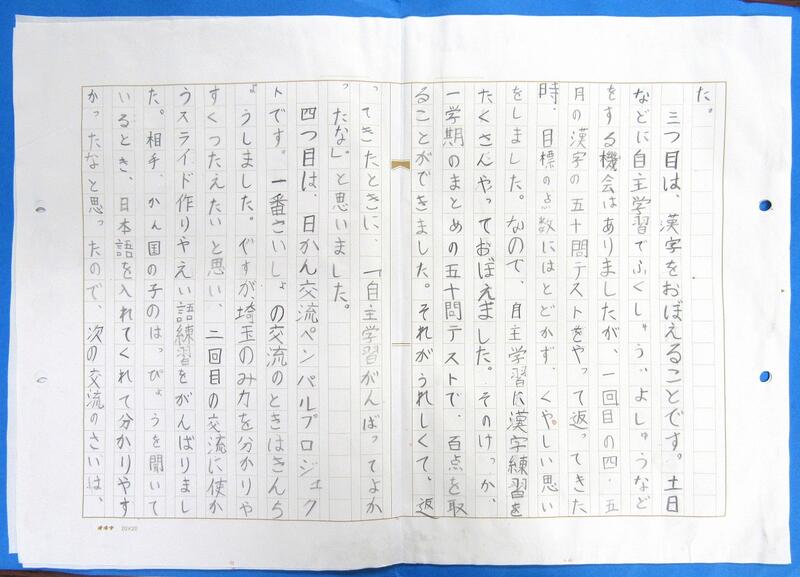 た。
　三つ目は、漢字をおぼえることです。土日
などに自主学習でふくしゅう、よしゅうなど
をする機会はありましたが、一回目の四・五
月の漢字の五十問テストをやって返ってきた
時、目標の点数にはとどかず、くやしい思い
をしました。なので、自主学習に漢字練習を
たくさんやっておぼえました。そのけっか、
一学期のまとめの五十問テストで、百点を取
ることができました。それがうれしくて、返
ってきたときに、「自主学習がんばってよか
ったな」。と思いました。
　四つ目は、日かん交流ペンパルプロジェク
トです。一番さいしょの交流のときはきんち
ょうしました。ですが埼玉のみ力を分かりや
すくつたえたいと思い、二回目の交流に使か
うスライド作りやえい語練習をがんばりまし
た。相手、かん国の子のはっぴょうを聞いて
いるとき、日本語を入れてくれて分かりやす
かったなと思ったので、次の交流のさいは、
20×20